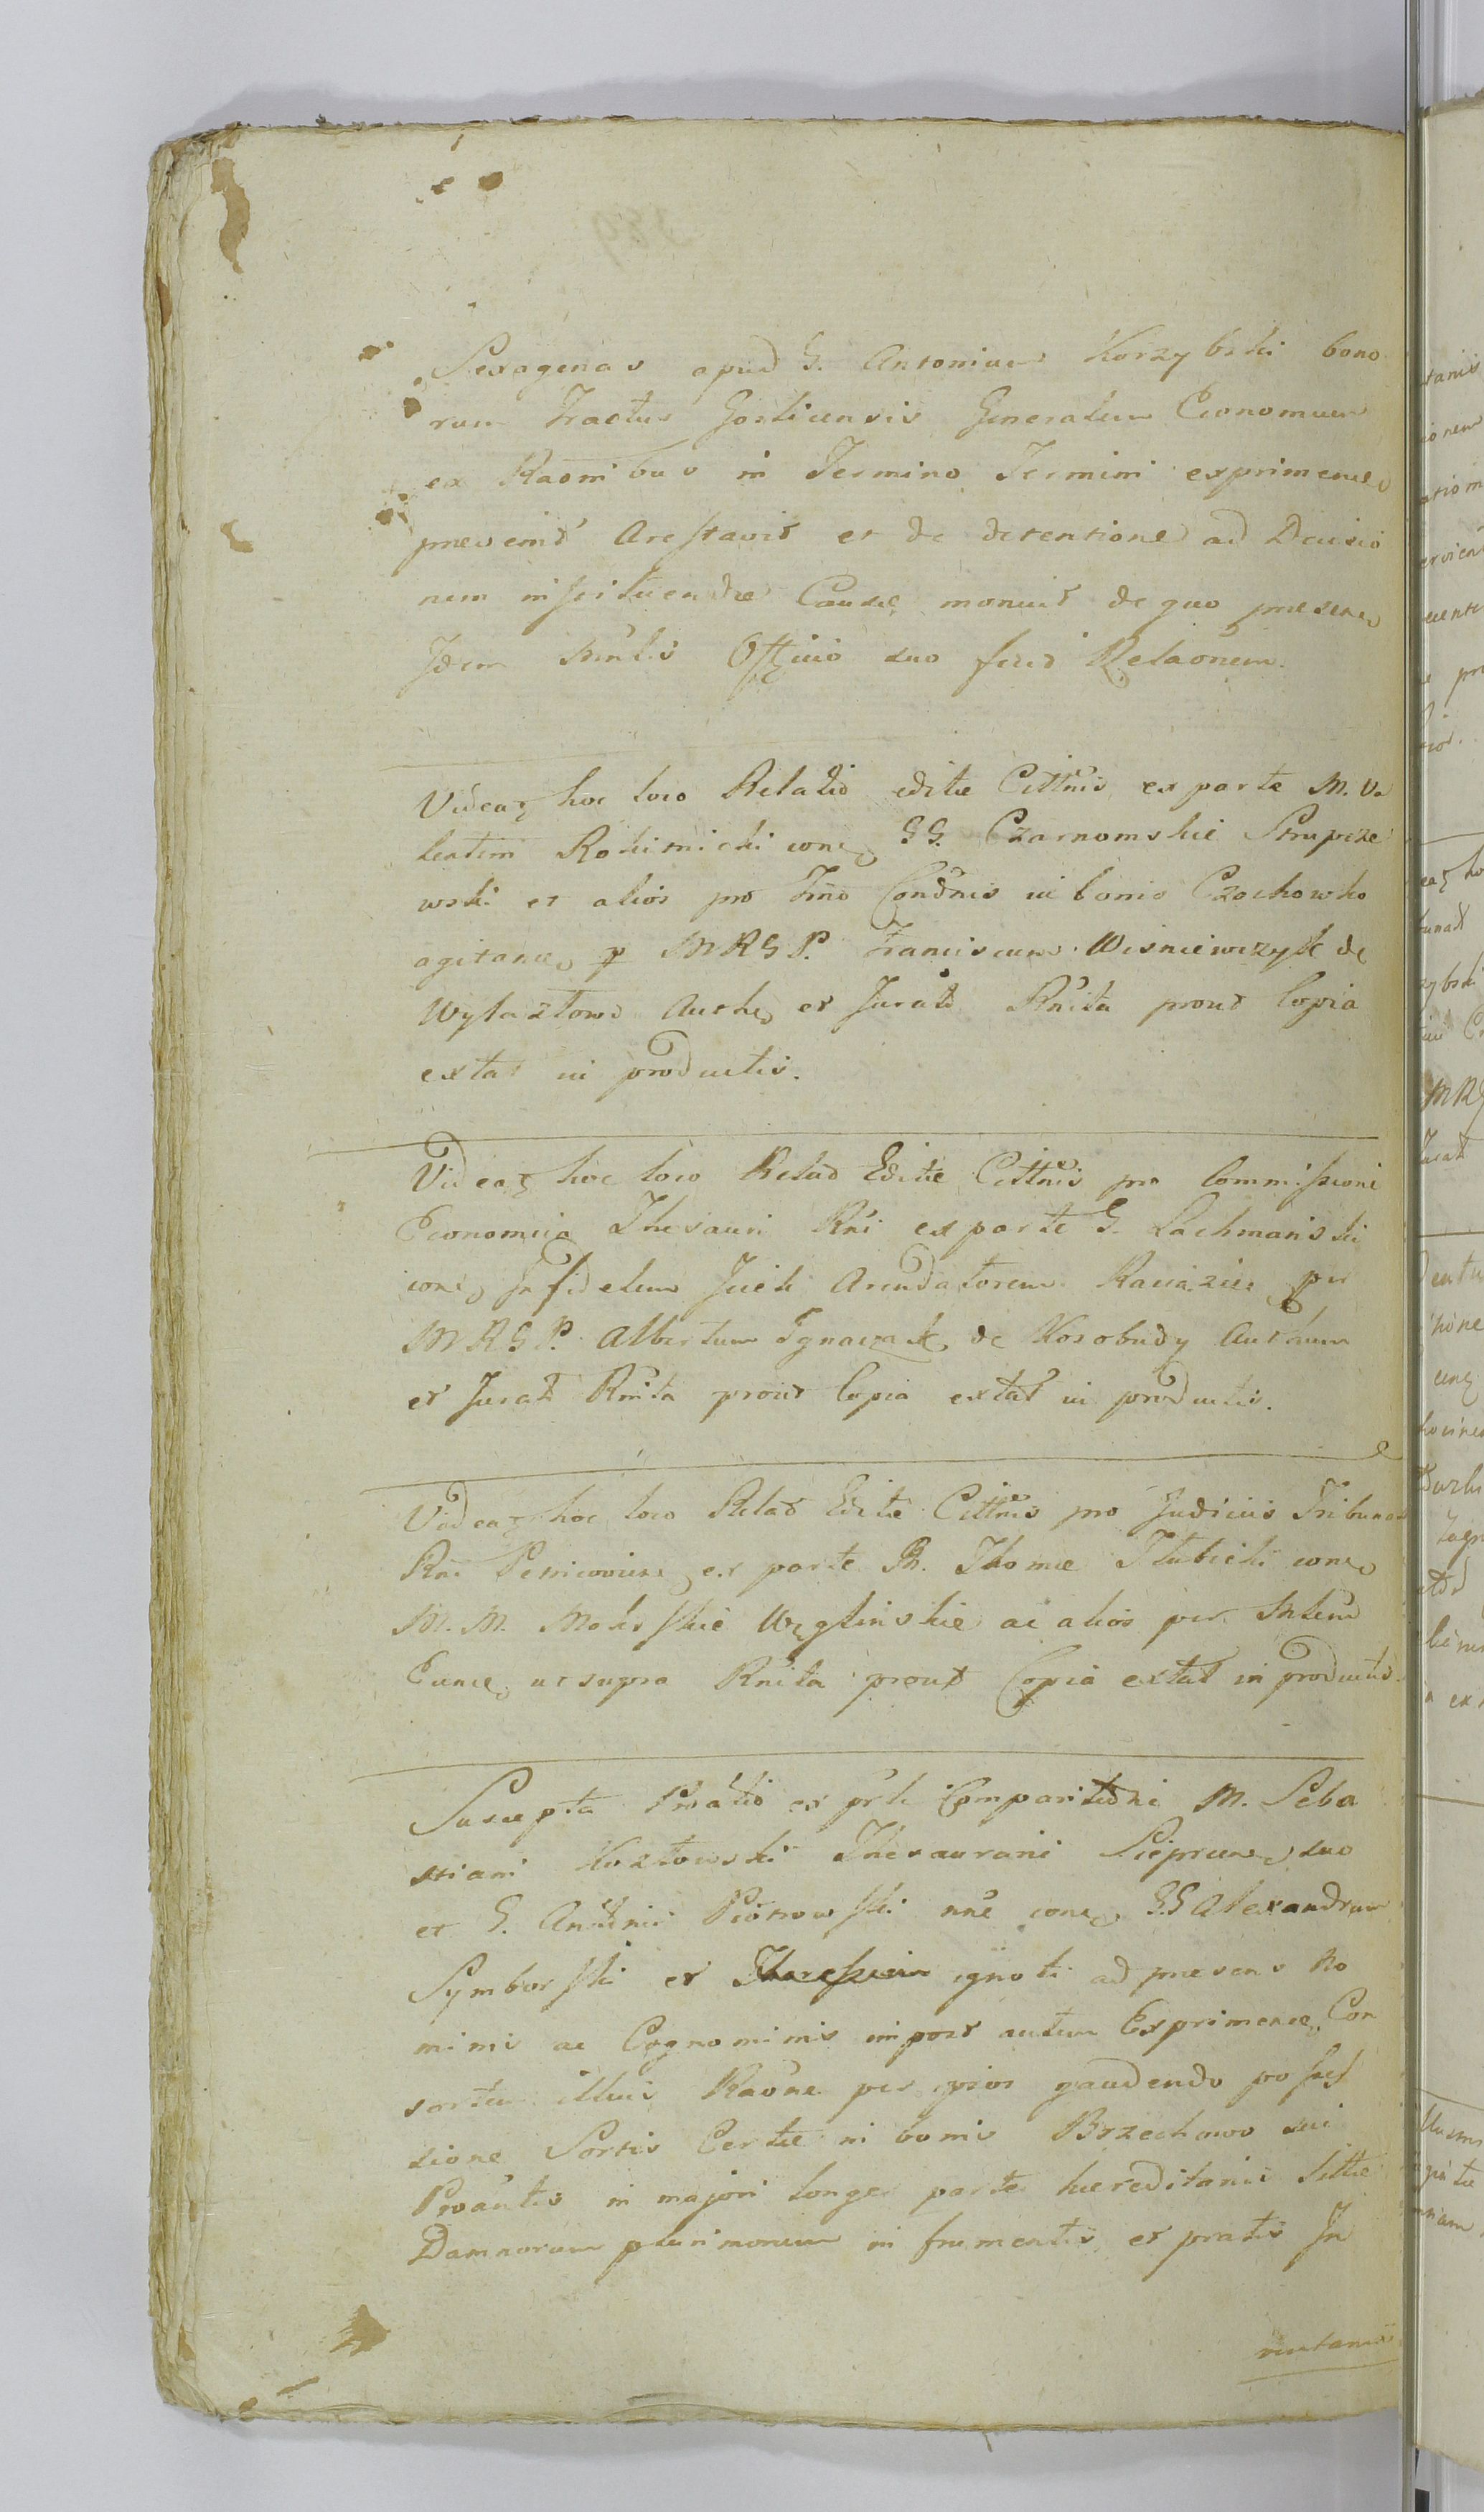 Sexagenas apud G. Antonium Korzybski bono
rum Tractus Gosticensis Generalem Economum
ex Raonibus in Termino Termini exprimene
prevenit Arestavit et de detentione ad Decisio
nem instituendae Causae monuit de quo presene
Idem Mnlis Officio suo fecit Relaonem.
Videaz hoc loco Relatio editae Cittnis ex parte M. Va
lentini Rokitnicki cone GG. Czarnomskie Strupcze
wski et alios pro Tmo Condnis in bonis Czochowko
agitane p MRGP. Franciscum Wisniewczyk de
Wylazlowo Authe et Jurat Rnita prout Copia
extat in productis.
Videaz hoc loco Relao Editae Cittnis pro Commissioni
Economica Thesauri Rni ex parte G. Lachmanski
cone Infidelem Jcek Arendatorem Raciaziae per
MRGP. Albertum Ignaczak de Kosobudy Authum
et Jurat Rnita prout Copia extat in productis.
Videaz hoc loco Relao Editae Cittnis pro Judiciis Tribunal
Rni ex parte M. Thomae Tlubicki cone
M. M. Mokrskie Węglinskie ac alios per Mnlem
Eunde ut supra Rnita prout Copia extat in productis.
Suscepta Proatio ex prli Comparitione M. Seba
stiani Kozlowski Thesaurarii Sieprcene suo
et G. Antonii Piotrowski nne cone GG Alexandrum
Symborski et ignoti ad presens No
minis ac Cognominis imposr autem Exprimende Con
sortem illius Raone per ipsos gaudendo posses
sione Sortis Certae in bonis Brzechowo sui
Proantis in majori longe parte haereditariis Sittae
Damnorum plurimorum in frumentis et pratis In